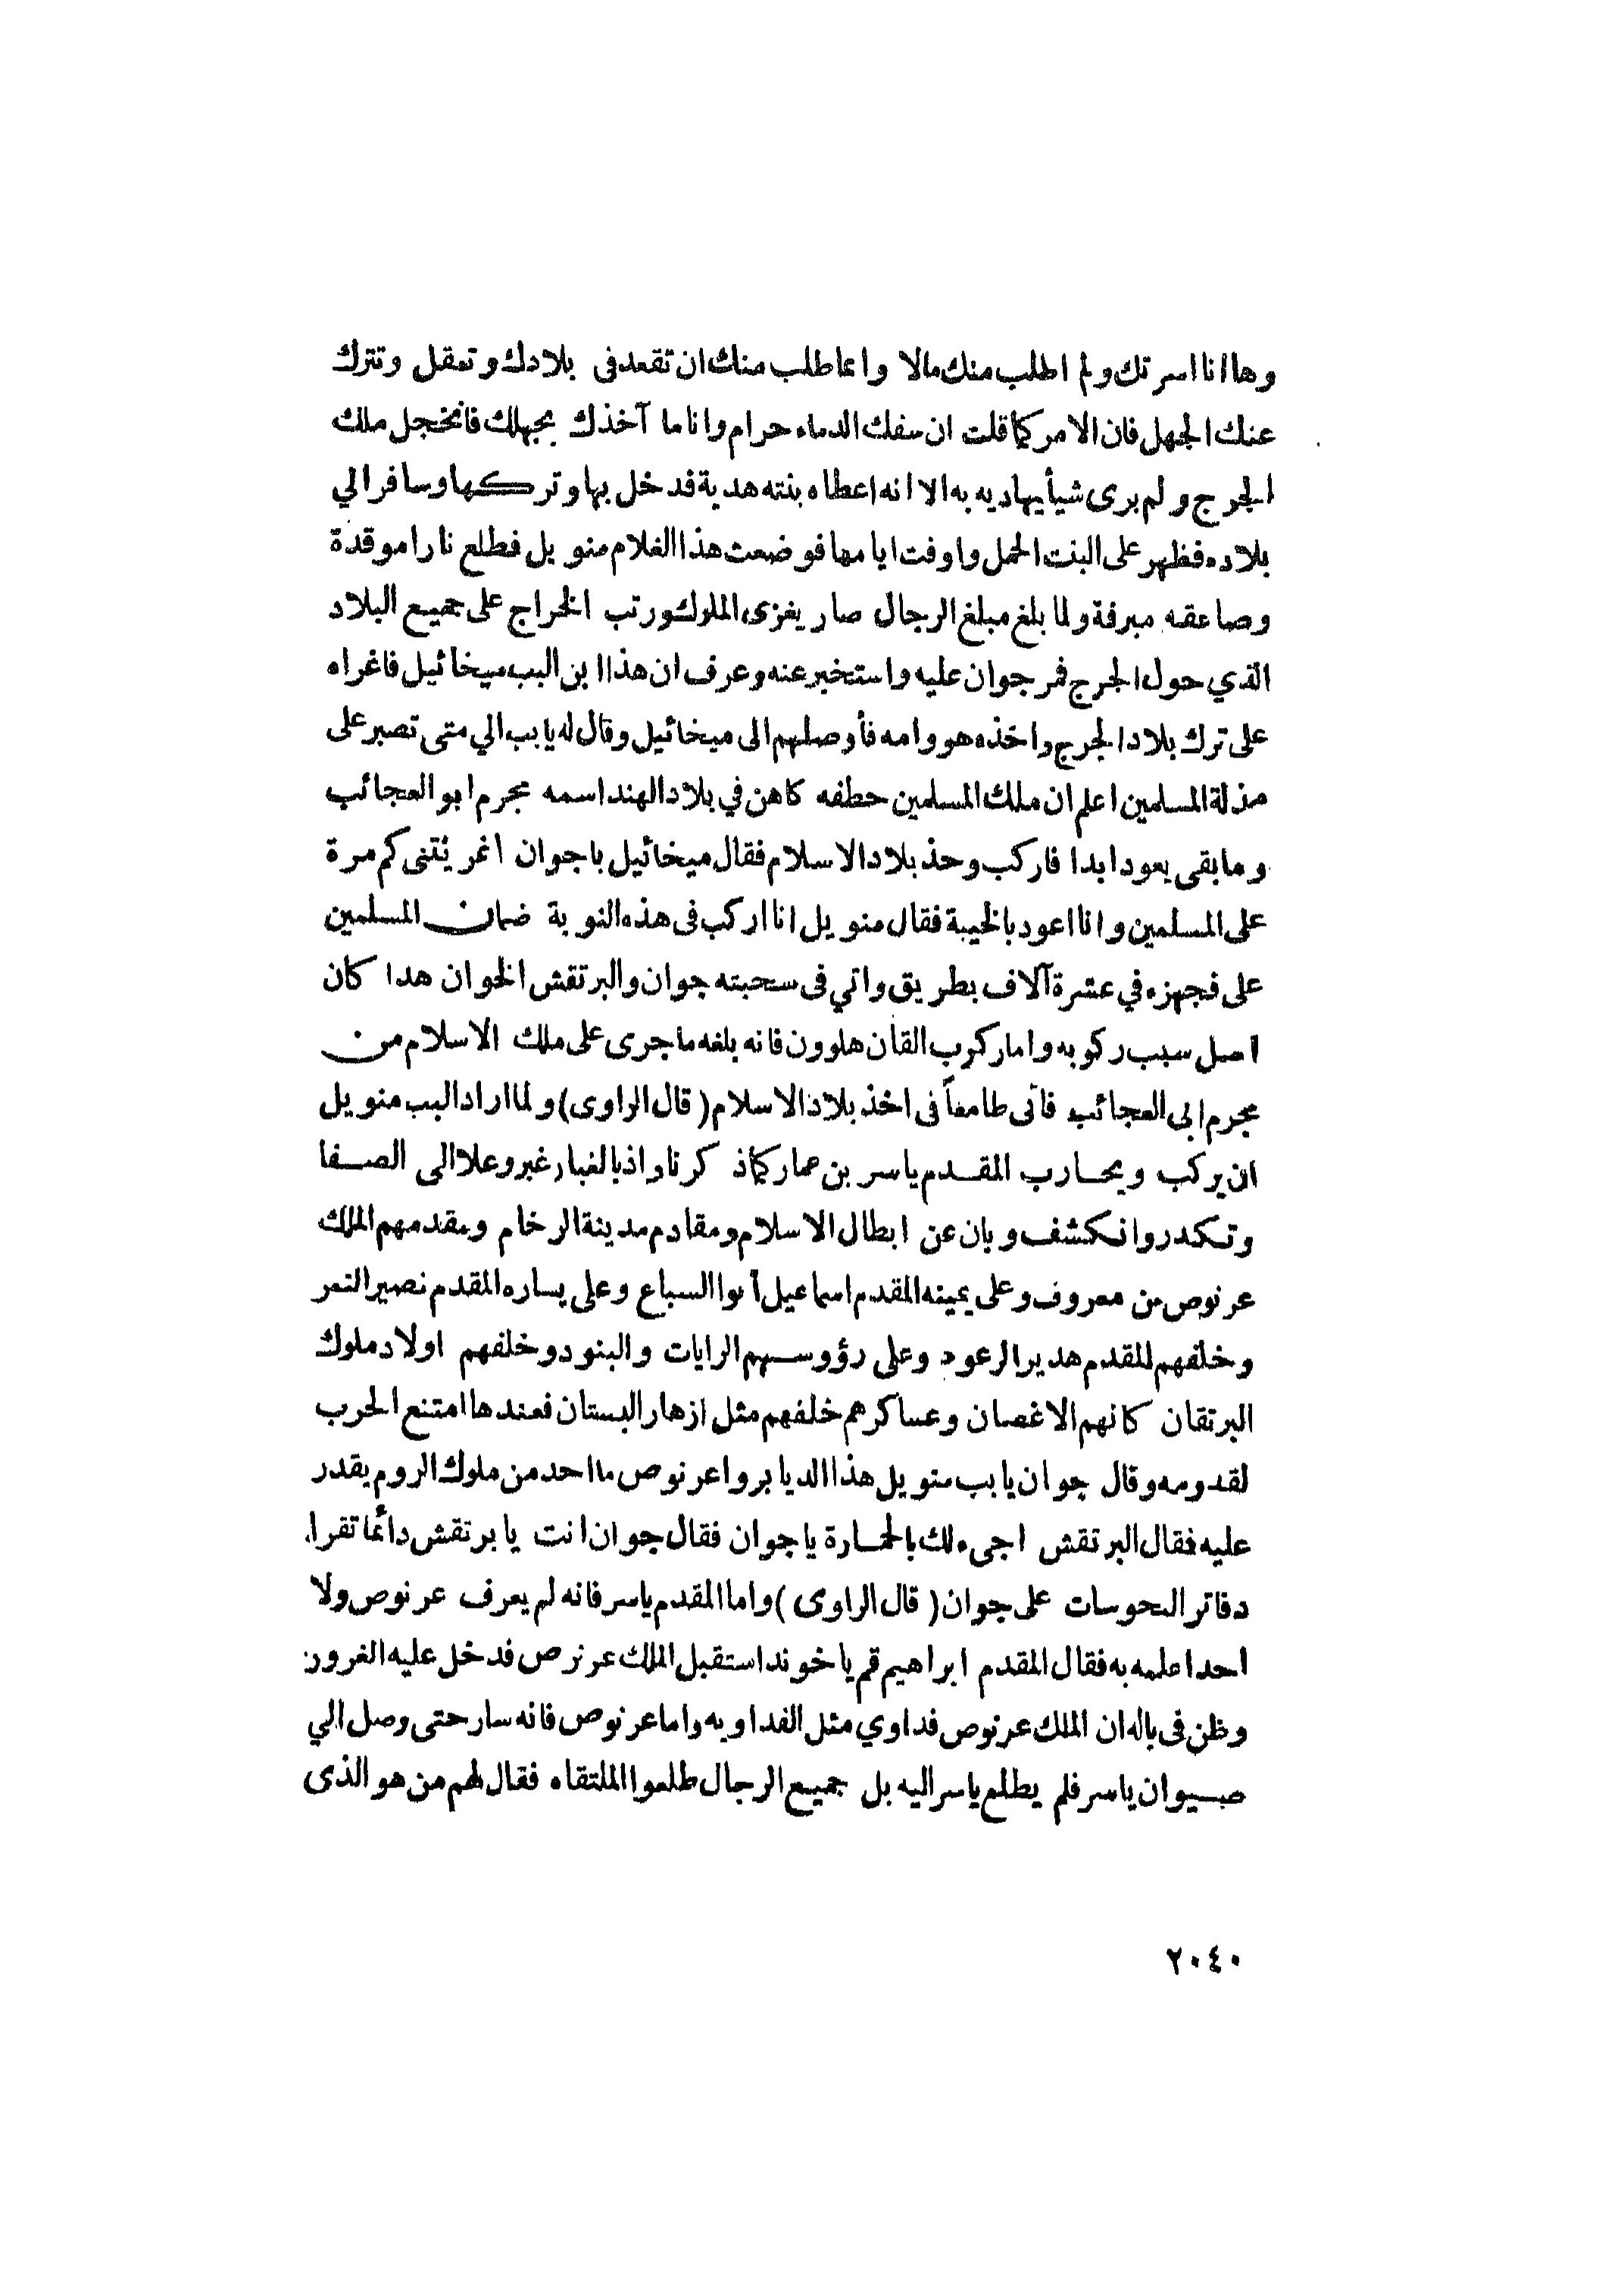 وها انا اسرتك ولم اطلب منك مالا وانما طلب منك ان تقعد فى بلادك وتعقل وتترك
عنك الجهل فان الامر كما قلت ان سفك الدماء حرام وانا ما آخذك بجهلك فانخجل ملك
الجرج ولم يرى شيأ يهاديه به الا انه اعطاه بنته هدية فدخل بها وتركها وسافر الي
بلاده فظهر على البنت الحمل واوفت ايامها فوضعت هذا الغلام منويل فطلع نارا موقدة
وصاعقه مبرقة ولما بلغ مبلغ الرجال صار يغزى الملوك ورتب الخراج على جميع البلاد
الذي حول الجرج فمر جوان عليه واستخبر عنه وعرف ان هذا ابن البب ميخائيل فاغراه
على ترك بلاد الجرج واخذه هو وامه فأوصلهم الى ميخائيل وقال له يا بب الي متى تصبر على
مذلة المسلمين اعلم ان ملك المسلمين حطفه كاهن في بلاد الهند اسمه مجرم ابو العجائب
وما بقى يعود ابدا فاركب وحذ بلاد الاسلام فقال ميخائيل باجوان اغريتنى كم مرة
على المسلمين وانا اعود بالخيبة فقال منويل انا اركب فى هذه النوبة ضمان المسلمين
على فجهزه في عشرة آلاف بطريق واتي فى سحبته جوان والبرتقش الخوان هدا كان
اصل سبب ركوبه واما ركوب القان هلوون فانه بلغه ما جرى على ملك الاسلام من
مجرم ابى العجائب فأتى طامعاً فى اخذ بلاد الاسلام (قال الراوى) ولما اراد البب منويل
ان يركب ويحارب المقدم ياسر بن عمار كماذ كرنا واذ بالغبار غبر وعلا الى الصفا
وتكدر وانكشف وبان عن ابطال الاسلام ومقادم مدينة الرخام ومقدمهم الملك
عرنوص بن معروف وعلى يمينه المقدم اسماعيل ابوا السباع وعلى يساره المقدم نصير النمر
وخلفهم المقدم هدير الرعود وعلى رؤوسهم الرايات والبنود وخلفهم اولاد ملوك
البرتقان كانهم الاغصان وعساكرهم خلفهم مثل ازهار البستان فعندها امتنع الحرب
لقدومه وقال جوان يا بب منويل هذا الديابروا عرنوص ما احد من ملوك الروم يقدر
عليه فقال البرتقش اجىء لك بالحمارة يا جوان فقال جوان انت يا برتقش دائما تقرا
دفاتر النحوسات على جوان (قال الراوى) واما المقدم ياسر فانه لم يعرف عرنوص ولا
احد اعلمه به فقال المقدم ابراهيم قم يا خوند استقبل الملك عرنرص فدخل عليه الغرور
وظن فى باله ان الملك عرنوص فداوي مثل الفداويه واما عرنوص فانه سار حتى وصل الي
صيوان ياسر فلم يطلع ياسر اليه بل جميع الرجال طلعوا الملتقاه فقال لهم من هو الذى
٢٠٤٠